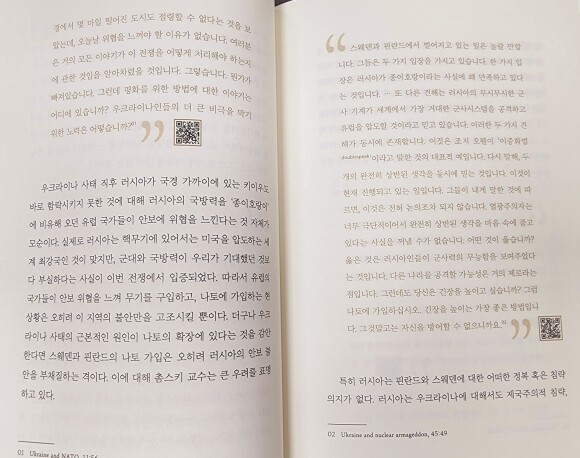 경에서 몇 마일 떨어진 도시도 점령할 수 없다는 것을 보
았는데, 오늘날 위협을 느껴야 할 이유가 없습니다. 여러분
은 거의 모든 이야기가 이 전쟁을 어떻게 처리해야 하는지
에 관한 것임을 알아차렸을 것입니다. 그렇습니다. 뭔가가
빠져있습니다. 그런데 평화를 위한 방법에 대한 이야기는
어디에 있습니까? 우크라이나인들의 더 큰 비극을 막기
위한 노력은 어떻습니까?01
우크라이나 사태 직후 러시아가 국경 가까이에 있는 키이우도
바로 함락시키지 못한 것에 대해 러시아의 국방력을 '종이호랑이'
에 비유해 오던 유럽 국가들이 안보에 위협을 느낀다는 것 자체가
모순이다. 실제로 러시아는 핵무기에 있어서는 미국을 압도하는 세
계 최강국인 것이 맞지만, 군대와 국방력이 우리가 기대했던 것보
다 부실하다는 사실이 이번 전쟁에서 입증되었다. 따라서 유럽의
국가들이 안보 위협을 느껴 무기를 구입하고, 나토에 가입하는 현
상황은 오히려 이 지역의 불안만을 고조시킬 뿐이다. 더구나 우크
라이나 사태의 근본적인 원인이 나토의 확장에 있다는 것을 감안
한다면 스웨덴과 핀란드의 나토 가입은 오히려 러시아의 안보 불
안을 부채질하는 격이다. 이에 대해 촘스키 교수는 큰 우려를 표명
하고 있다.
01 Ukraine and NATO, 11:56
스웨덴과 핀란드에서 벌어지고 있는 일은 놀랄 만합
니다. 그들은 두 가지 입장을 가지고 있습니다. 한 가지 입
장은 러시아가 종이호랑이라는 사실에 꽤 만족하고 있다
는 것입니다. … 또 다른 견해는 러시아의 무시무시한 군
사 기계가 세계에서 가장 거대한 군사시스템을 공격하고
유럽을 압도할 것이라고 믿고 있습니다. 이러한 두 가지 견
해가 동시에 존재합니다. 이것은 조지 오웰이 '이중화법
doublespeak'이라고 말한 것의 대표적 예입니다. 다시 말해, 두
개의 완전히 상반된 생각을 동시에 믿는 것입니다. 이것이
현재 진행되고 있는 일입니다. 그들이 내게 말한 것에 따
르면, 이것은 전혀 논의조차 되지 않습니다. 열광주의자는
너무 극단적이어서 완전히 상반된 생각을 마음 속에 품고
있다는 사실을 꺼낼 수가 없습니다. 어떤 것이 옳습니까?
옳은 것은 러시아인들이 군사력의 무능함을 보여주었다
는 것입니다. 다른 나라를 공격할 가능성은 거의 제로라는
점입니다. 그런데도 당신은 긴장을 높이고 싶습니까? 그럼
나토에 가입하십시오. 긴장을 높이는 가장 좋은 방법입니
다. 그것말고는 자신을 방어할 수 없으니까요.02
특히 러시아는 핀란드와 스웨덴에 대한 어떠한 정복 혹은 침략
의지가 없다. 러시아는 우크라이나에 대해서도 제국주의적 침략,
02 Ukraine and nuclear armageddon, 45:49